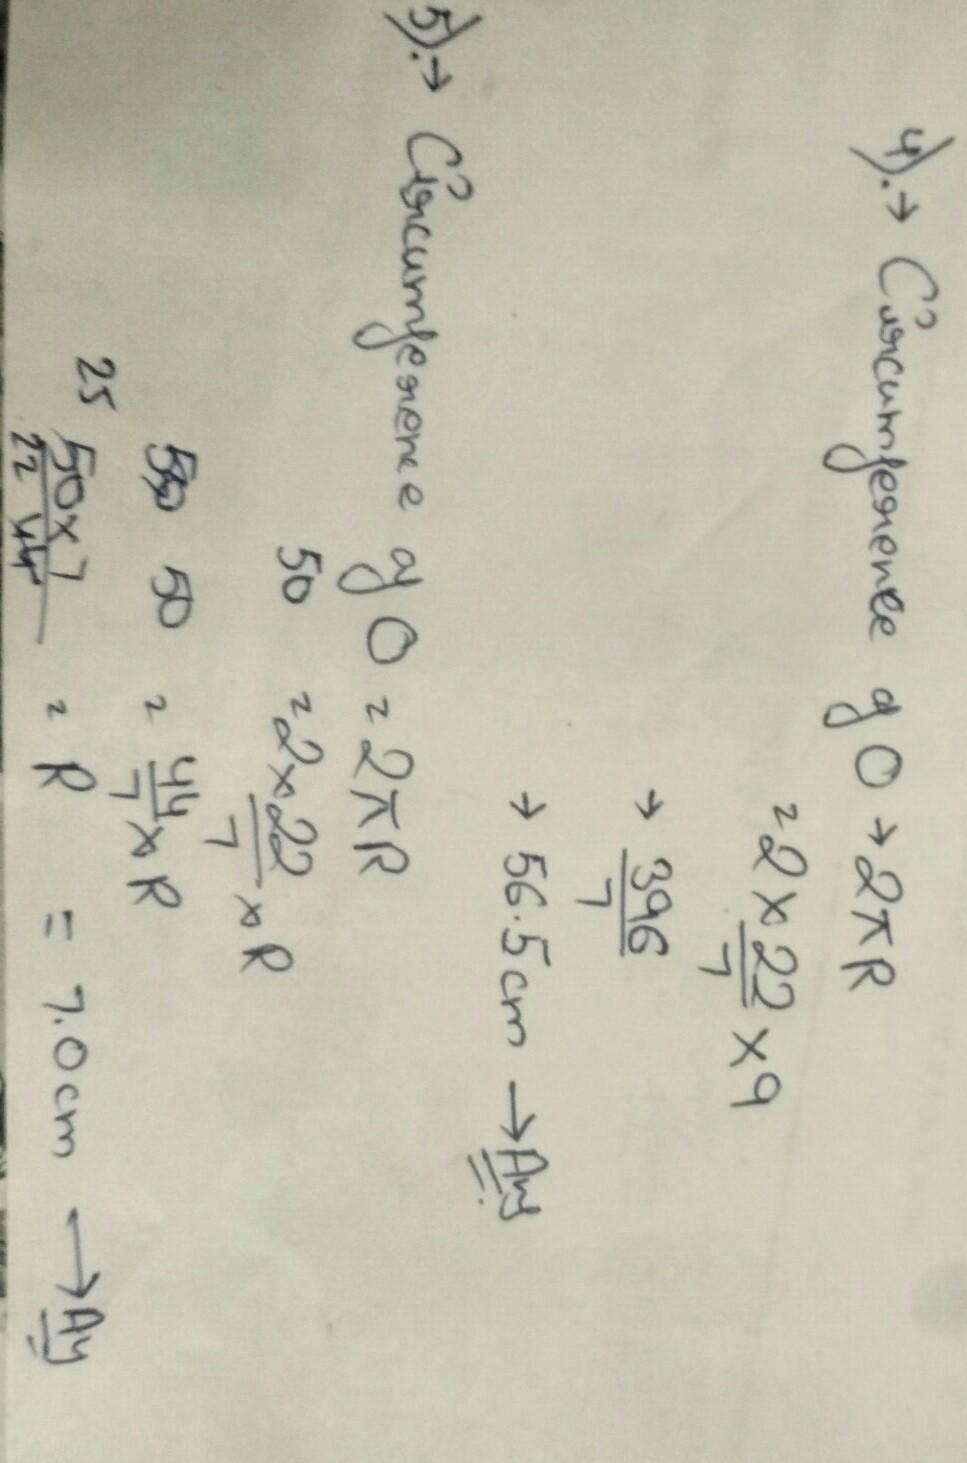 4).→ Circumference of O → 2πR
= 2 × 22/7 × 9
→ 396/7
→ 56.5 cm → Ans
5).→ Circumference of O = 2πR
50 = 2 × 22/7 × R
50 = 44/7 × R
25 50×7/44 22 = R = 7.0 cm → Ans